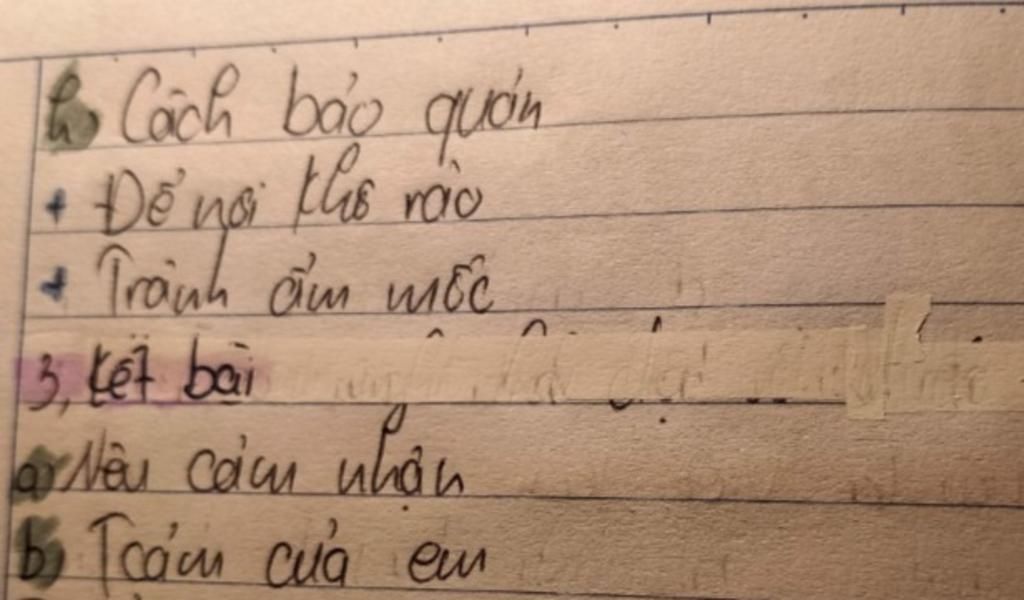 h) Cách bảo quản
+ Để nơi khô ráo
+ Tránh ẩm mốc
3, Kết bài
a) Nêu cảm nhận
b) Tcảm của em